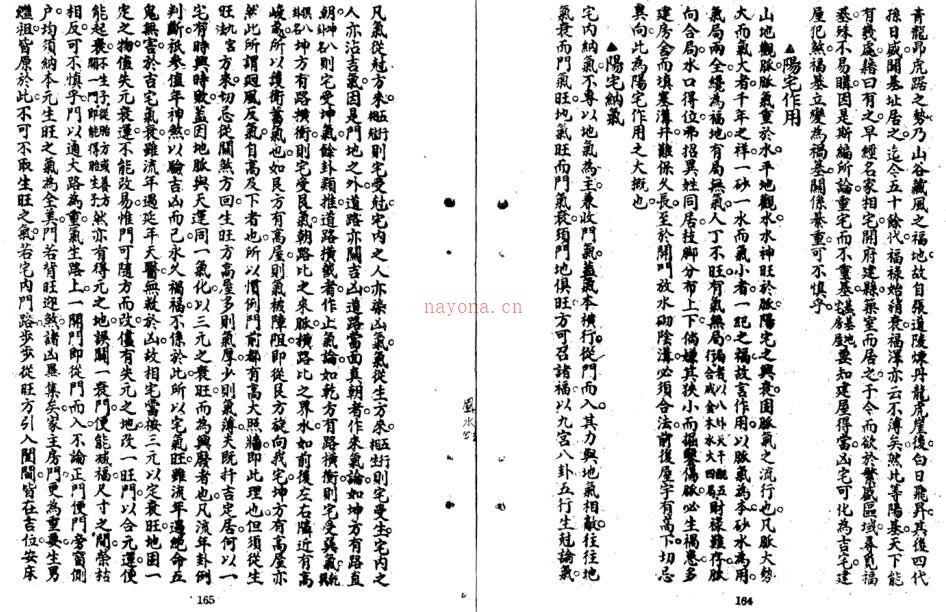 青龍昂虎踞之勢乃山谷藏風之福地故自張道陵煉丹龍虎崖後白日飛昇其後四代
孫日盛開基址居之迄今五十餘代福祿始終稍衰福澤亦云不薄矣然此等陽基天下能
有幾處耱曰有之早經名家相宅開府建縣築室而居之于今而欲於繁盛區域尋覓福
基殊不易購因是斯編所論重宅而不重基要知建屋得當凶宅可化為吉宅建
屋犯煞福基立變為禍基關係綦重可不慎乎
▲陽宅作用
山地觀脉脉氣重於水平地觀水水神旺於脉陽宅之興衰因脉氣之流行也凡脉大勢
大而氣大者千年之祥一砂一水而氣小者一紀之福故言作用以脉氣為本砂水為用
氣局兩全纔為福地有局無氣人丁不旺有氣無局財祿難存脉
向合局水口得位弗招異姓同居技脚分布上下倘嫌其狹小而掘鑿傷脉必生禍患多
建房舍而填塞溝井難保久長至於開門放水砌陰溝必須合法前後屋宇有高下切忌
異向此為陽宅作用之大概也
▲陽宅納氣
宅內納氣不專以地氣為主兼收門氣蓋氣本橫行從門而入其力與地氣相敵往往地
氣衰而門氣旺地氣旺而門氣衰須門地俱旺方可召諸福以九宮八卦五行生尅論氣
164
風水
凡氣從尅方來則宅受尅宅內之人亦染凶氣氣從生方來則宅受生宅內之
人亦沾吉氣因是門地之外道路亦關吉凶道路當面真朝者作來氣論如坤方有路直
朝則宅受坤氣餘卦類推道路橫截者作止氣論如乾方有路橫衝則宅受巽氣
坤方有路橫衝則宅受艮氣朝路比之來脉橫路比之界水如前後左右隣近有高
峻處所以護衛蓄氣也如艮方有高屋則氣被障阻即從艮方旋向我宅坤方有高屋亦
然此所謂迴風反氣自高反下者也所以慣例門前都有高大照牆即此理也但須從生
旺宮方來切忌從關煞方回生旺方高屋多則氣厚少則氣薄夫既扦吉定居何以一
宅有時興時敗蓋因地脉與天運同一氣化以三元之衰旺而為興廢者也凡流年卦例
判斷祇參值年神煞以驗吉凶而已永久禍福不係於此所以宅氣旺雖流年遇絕命五
鬼無害於吉宅氣衰雖流年遇延年天醫無救於凶故相宅當按三元以定衰旺地固一
定之物值失元衰運不能改易惟門可隨方而改儘有失元之地改一旺門以合元運便
能起衰亦有得元之地誤開一衰門便能減福尺寸之間榮枯
相反可不慎乎門以通大路為重氣生路上一開門即從門而入不論正門便門旁窗側
户均須納本元生旺之氣為全美門若背旺迎煞諸凶畢集矣家主房門更為重要生男
繼祖皆原於此不可不取生旺之氣若宅內門路步步從旺方引入閨閫皆在吉位安床
165
nayona.cn